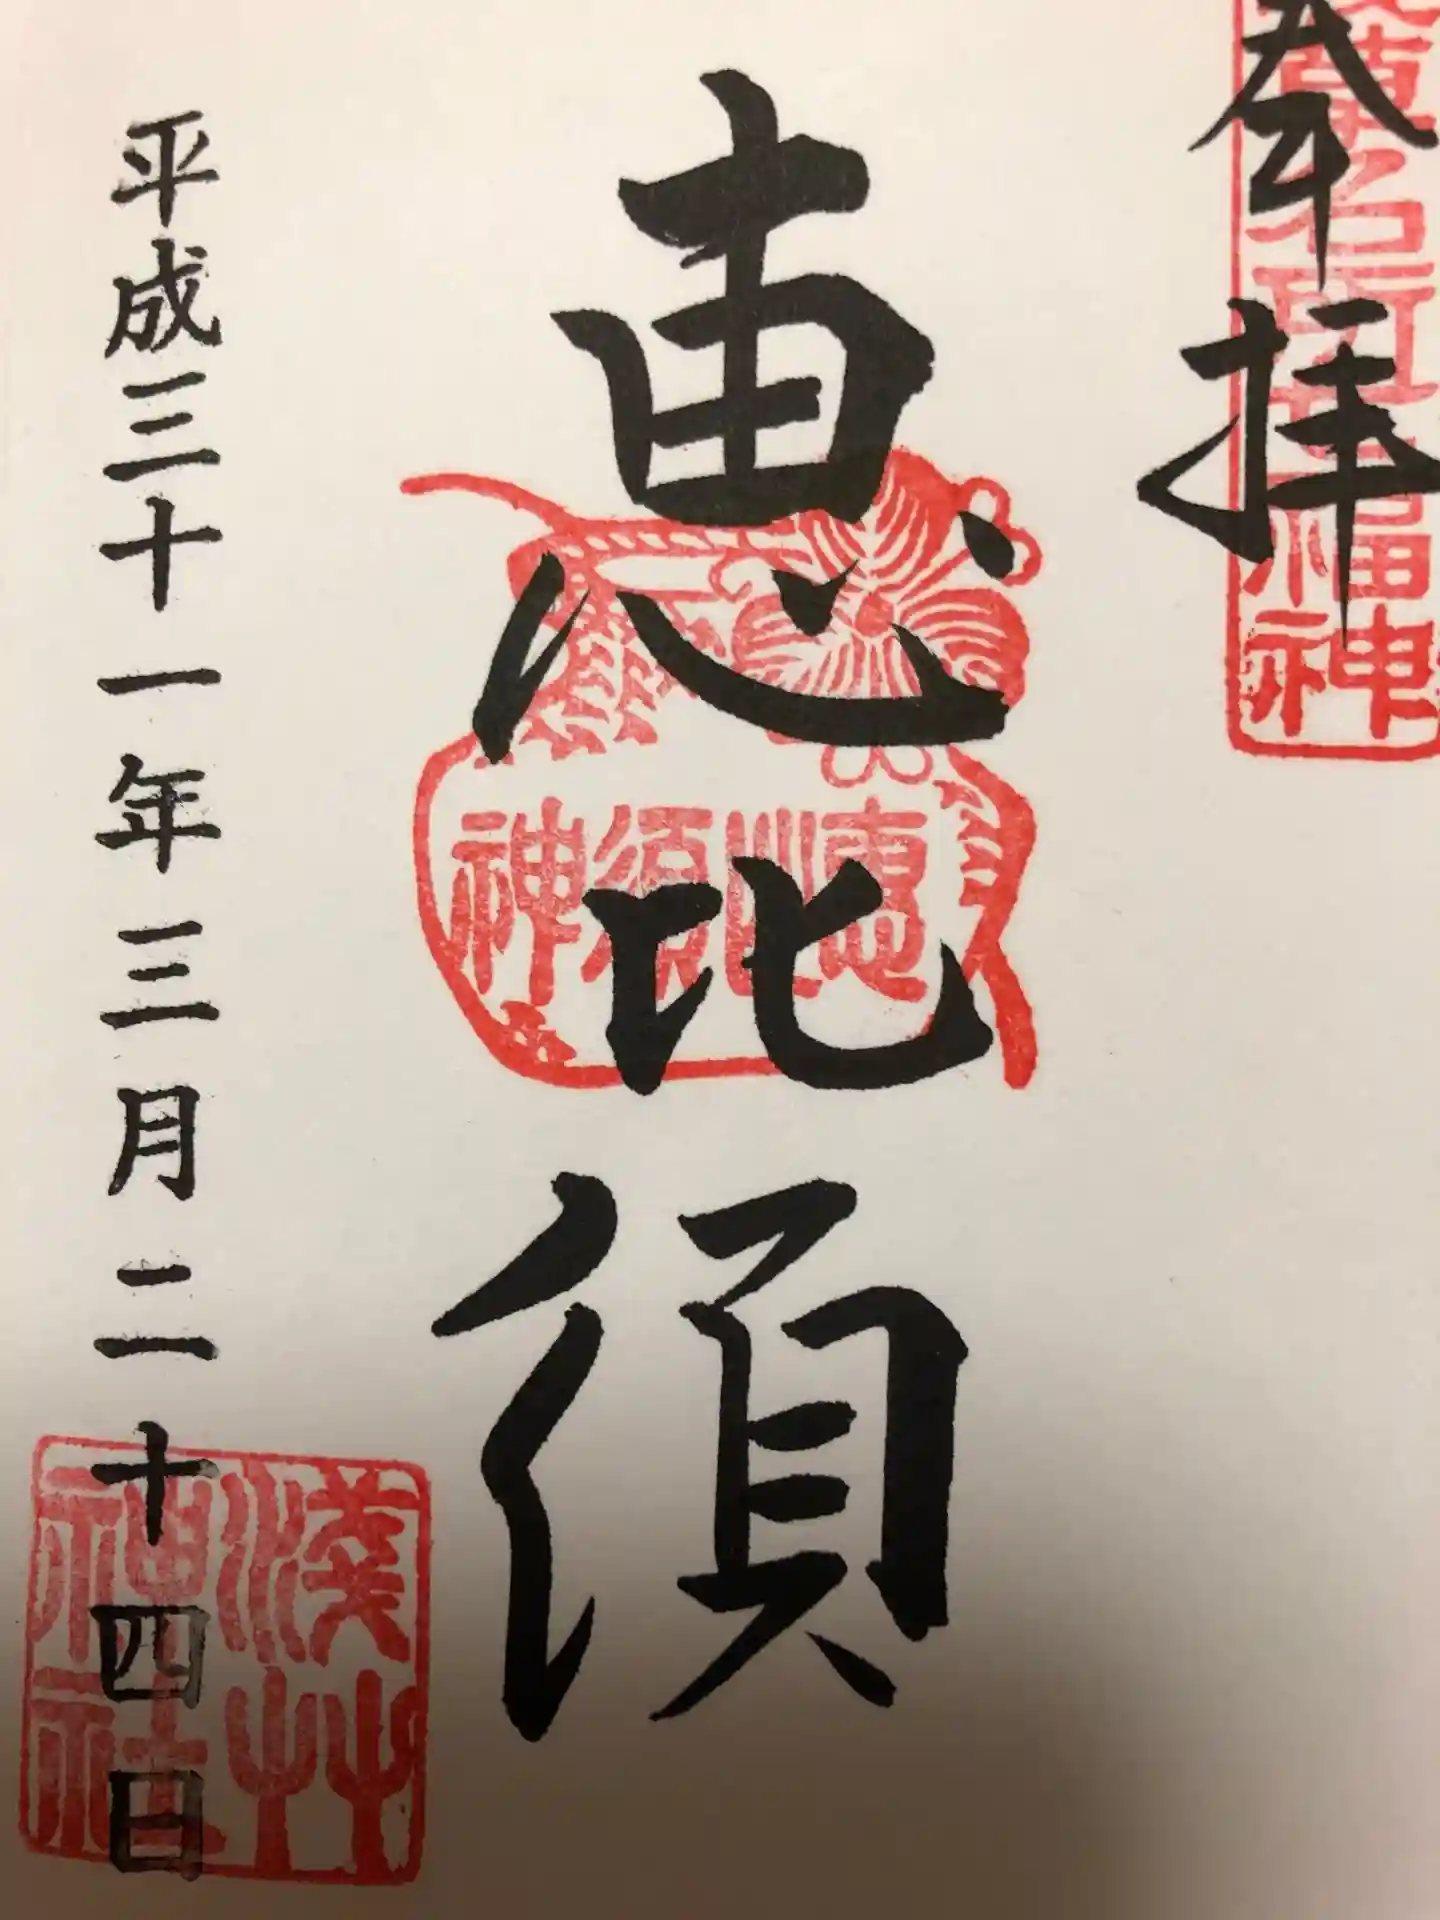 奉拝
草名所七福神
恵比須
恵比須神
平成三十一年三月二十四日
浅草神社